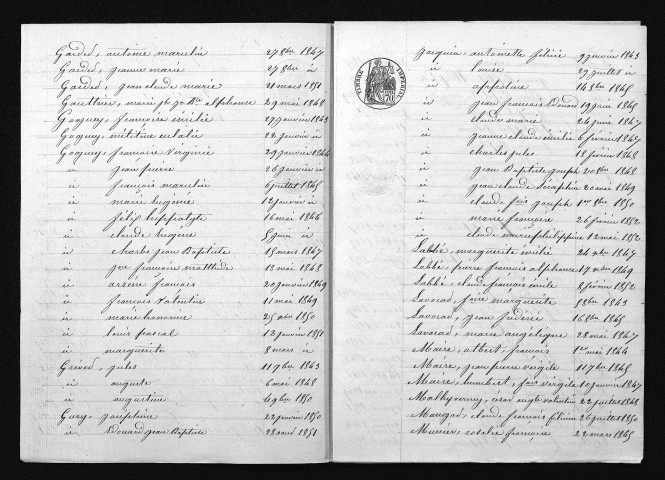 Gardet, antoine marcelin 27 8bre 1847
Gardet, jeanne marie 27 8bre id
Gardet, jean claude marie 21 mars 1851
Gauthier, marie jh Jn Bte alphonse 29 mai 1848
Goguey, francoise émilie 27 janvier 1843
Goguey, mélitine eulalie 22 janvier id
Goguey, francoise virginie 29 janvier 1844
id jean pierre 26 janvier id
id françois marcelin 6 juillet 1845
id marie eugenie 12 janvier id
id félix hippolyte 16 mai 1846
id claude eugène 5 juin id
id charles jean Baptiste 15 mars 1847
id francoise mathilde 13 mai 1848
id arsène françois 20 janvier 1849
id francois valentin 11 mai 1849
id marie honorine 25 xbre 1850
id louis pascal 12 janvier 1851
id marguerite 8 mars id
jules 11 7bre 1843
id auguste 6 mai 1848
id augustine 4 9bre 1850
Gury, josephine 22 janvier 1850
id Edouard jean Baptiste 28 aout 1851
TIMBRE IMPERIAL
Jacquin, antoinette félicie 9 janvier 1843
id louise 29 juillet id
id appoline 14 8bre 1845
id jean françois Edouard 19 juin 1845
id claude marie 24 juin 1847
id jeanne claude émilie 6 février 1847
id charles jules 18 février 1848
id jean Baptiste joseph 20 8bre 1848
id jean claude Séraphin 20 aout 1849
id claude fois joseph 1er 8bre 1850
id marie francoise 26 février 1852
id claude marie philippine 12 mai 1852
Labbé, marguerite émilie 24 xbre 1847
Labbé, pierre françois alphonse 17 xbre 1849
Labbé, claude françois émile 8 février 1852
Lavocat, foise marguerite 5 8bre 1843
Lavocat, jean fréderic 16 8bre 1845
Lavocat, marie angélique 28 mai 1847
Maire, albert françois 1er mai 1844
Maire, jean pierre virgile 11 7bre 1845
Maire, humbert, fois virgile 10 janvier 1847
césar valentin 22 juillet 1848
Mougad, claude françois 26 juillet 1850
Munier, rosalie françoise 22 mars 1845